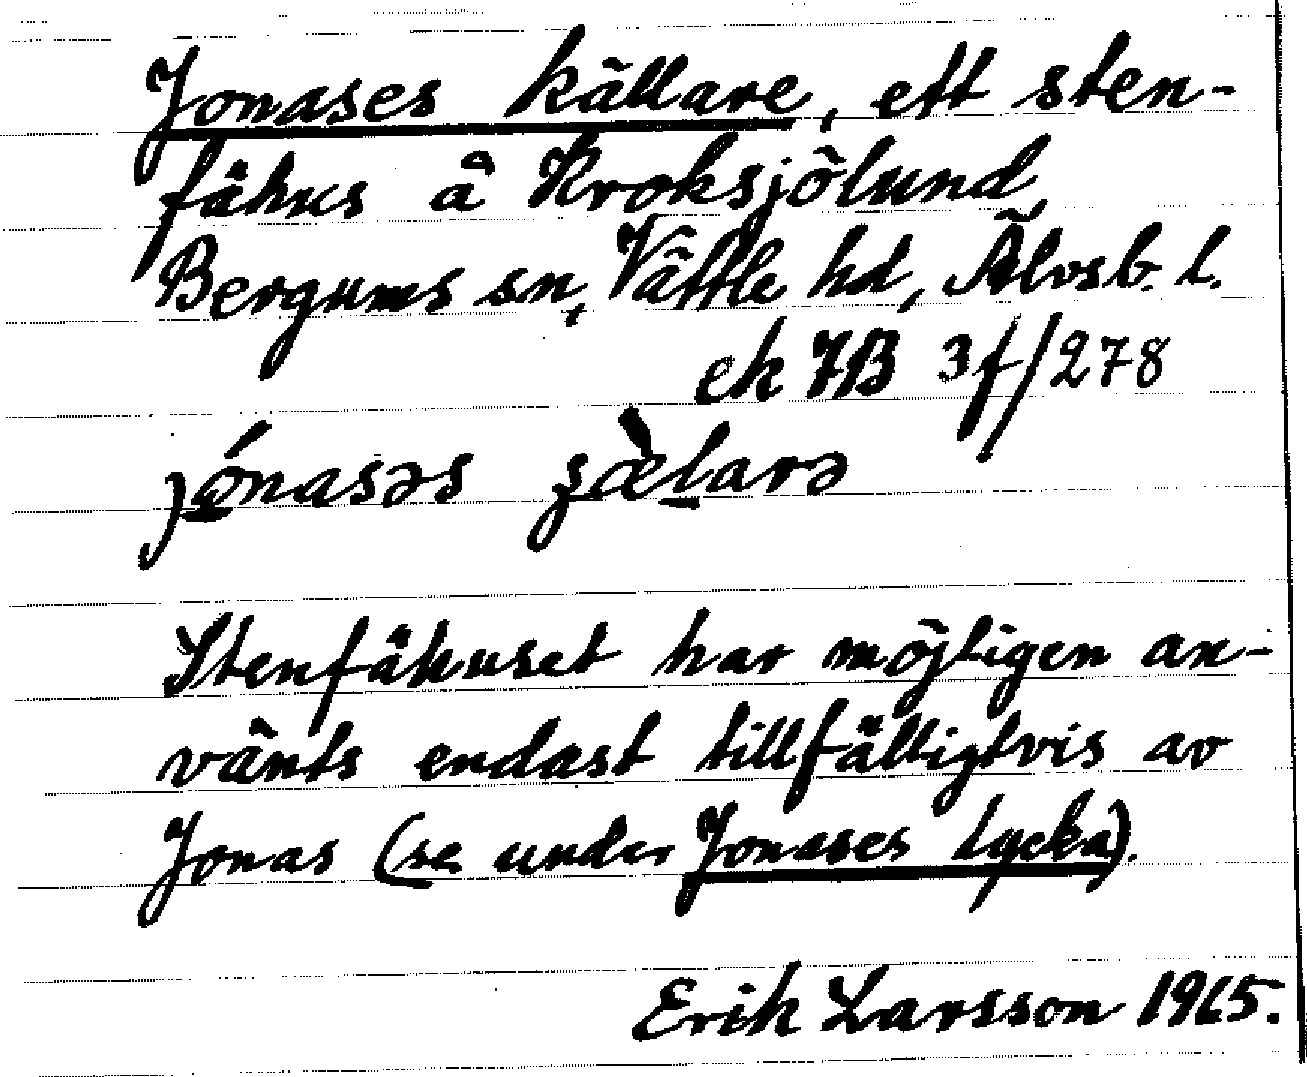 Jonases källare, ett sten-
fähus å Kroksjölund,
Bergums sn, Vättle hd, Älvsb. l.
ek 7B 3f/278
jónasəs ʂæ̀larə
Stenfähuset har möjligen an-
vänts endast tillfälligtvis av
Jonas (se under Jonases lycka).
Erik Larsson 1965.